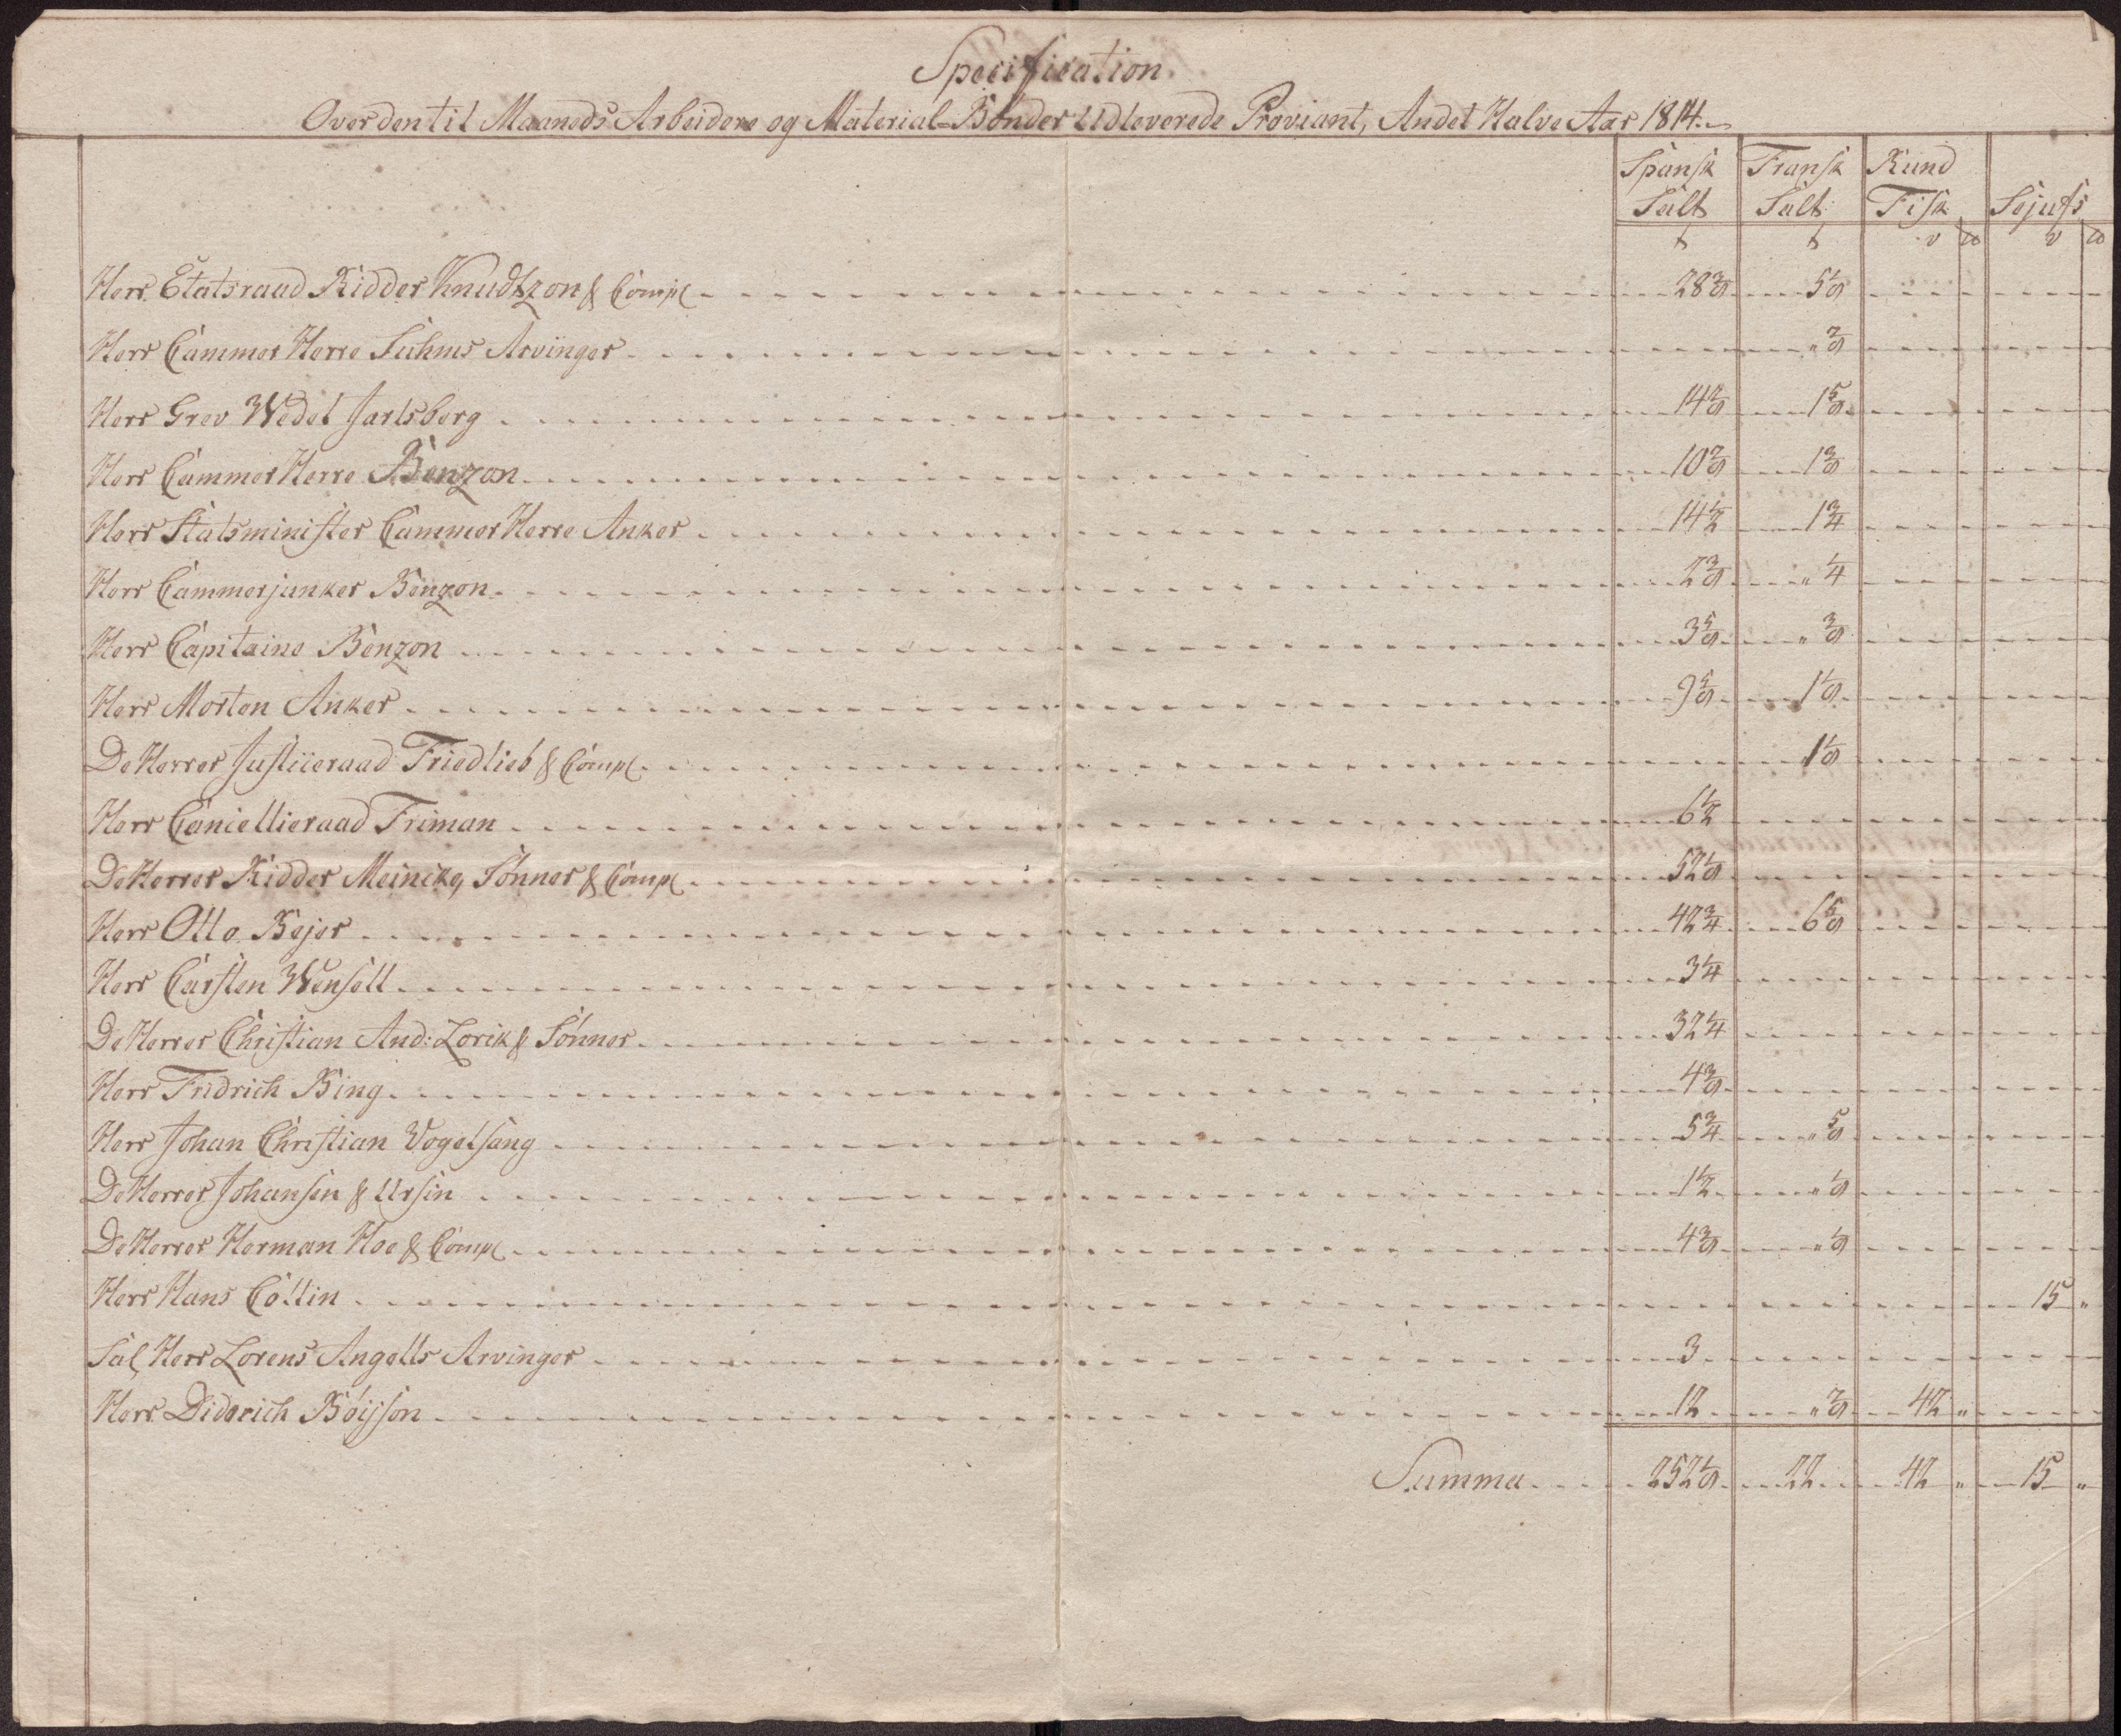 Specification
Over den til Maaneds Arbeidere og Material-Bønder Udleverede Proviant, Andet Halve Aar 1814.
Spansk Salt Fransk Salt Rund Fisk Sejufs
t t v ℔ v ℔
Herr Etatsraad Ridder Knudtzon & Comp 28 3/8 5 1/8
Herr Cammer Herre Suhms Arvinger " 7/8
Herr Grev Wedel Jarlsberg 14 7/8 1 5/8
Herr Cammer Herre Benzon 10 7/8 1 3/8
Herr Statsminister Cammer Herre Anker 14 1/2 1 3/4
Herr Cammerjunker Benzon 2 3/8 " 1/4
Herr Capitaine Benzon 3 5/8 " 3/8
Herr Morten Anker 9 5/8 1 1/8
De Herrer Justiceraad Friedlieb & Comp 1 1/8
Herr Cancellieraad Friman 6 1/2
De Herrer Ridder Meincke, Sønner & Comp 52 1/8
Herr Otto Bejer 42 3/4 6 5/8
Herr Carsten Wensell 3 1/4
De Herrer Christian And: Lorik & Sønner 32 1/4
Herr Fridrich Bing 4 3/8
Herr Johan Christian Vogelsang 5 3/4 " 5/8
De Herrer Johansen & Ursin 1 1/2 " 1/8
De Herrer Herman Hoe & Comp 4 3/8 " 1/8
Herr Hans Collin 15 "
Sal Herr Lorens Angells Arvinger 3
Herr Diderich Böijson 12 " 7/8 42 "
Summa 252 1/8 22 42 " 15 "